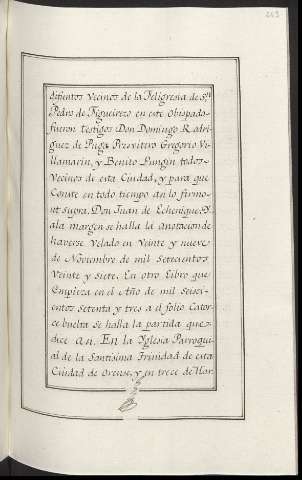 263
difuntos Vecinos de la Feligresia de Sn.
Pedro de Figueiredo en este Obispado
fueron testigos Don Domingo Rodri
guez de Puga Presvitero Gregorio Vi
llamarin, y Benito Pungin todos
Vecinos de esta Ciudad, y para que
Conste en todo tiempo an lo firmo
ut supra. Don Juan de Echenique. Y
ala margen se halla la anotacion de
haverse Velado en Veinte y nueve
de Noviembre de mil Setecientos
Veinte y siete. En otro Libro que
Empieza en el Año de mil Seisci
entos Setenta y tres a el folio Cator
ce buelta se halla la partida que
dice an. En la Yglesia Parroqui
al de la Santisima Trinidad de esta
Ciudad de Orense, y en trece de Mar